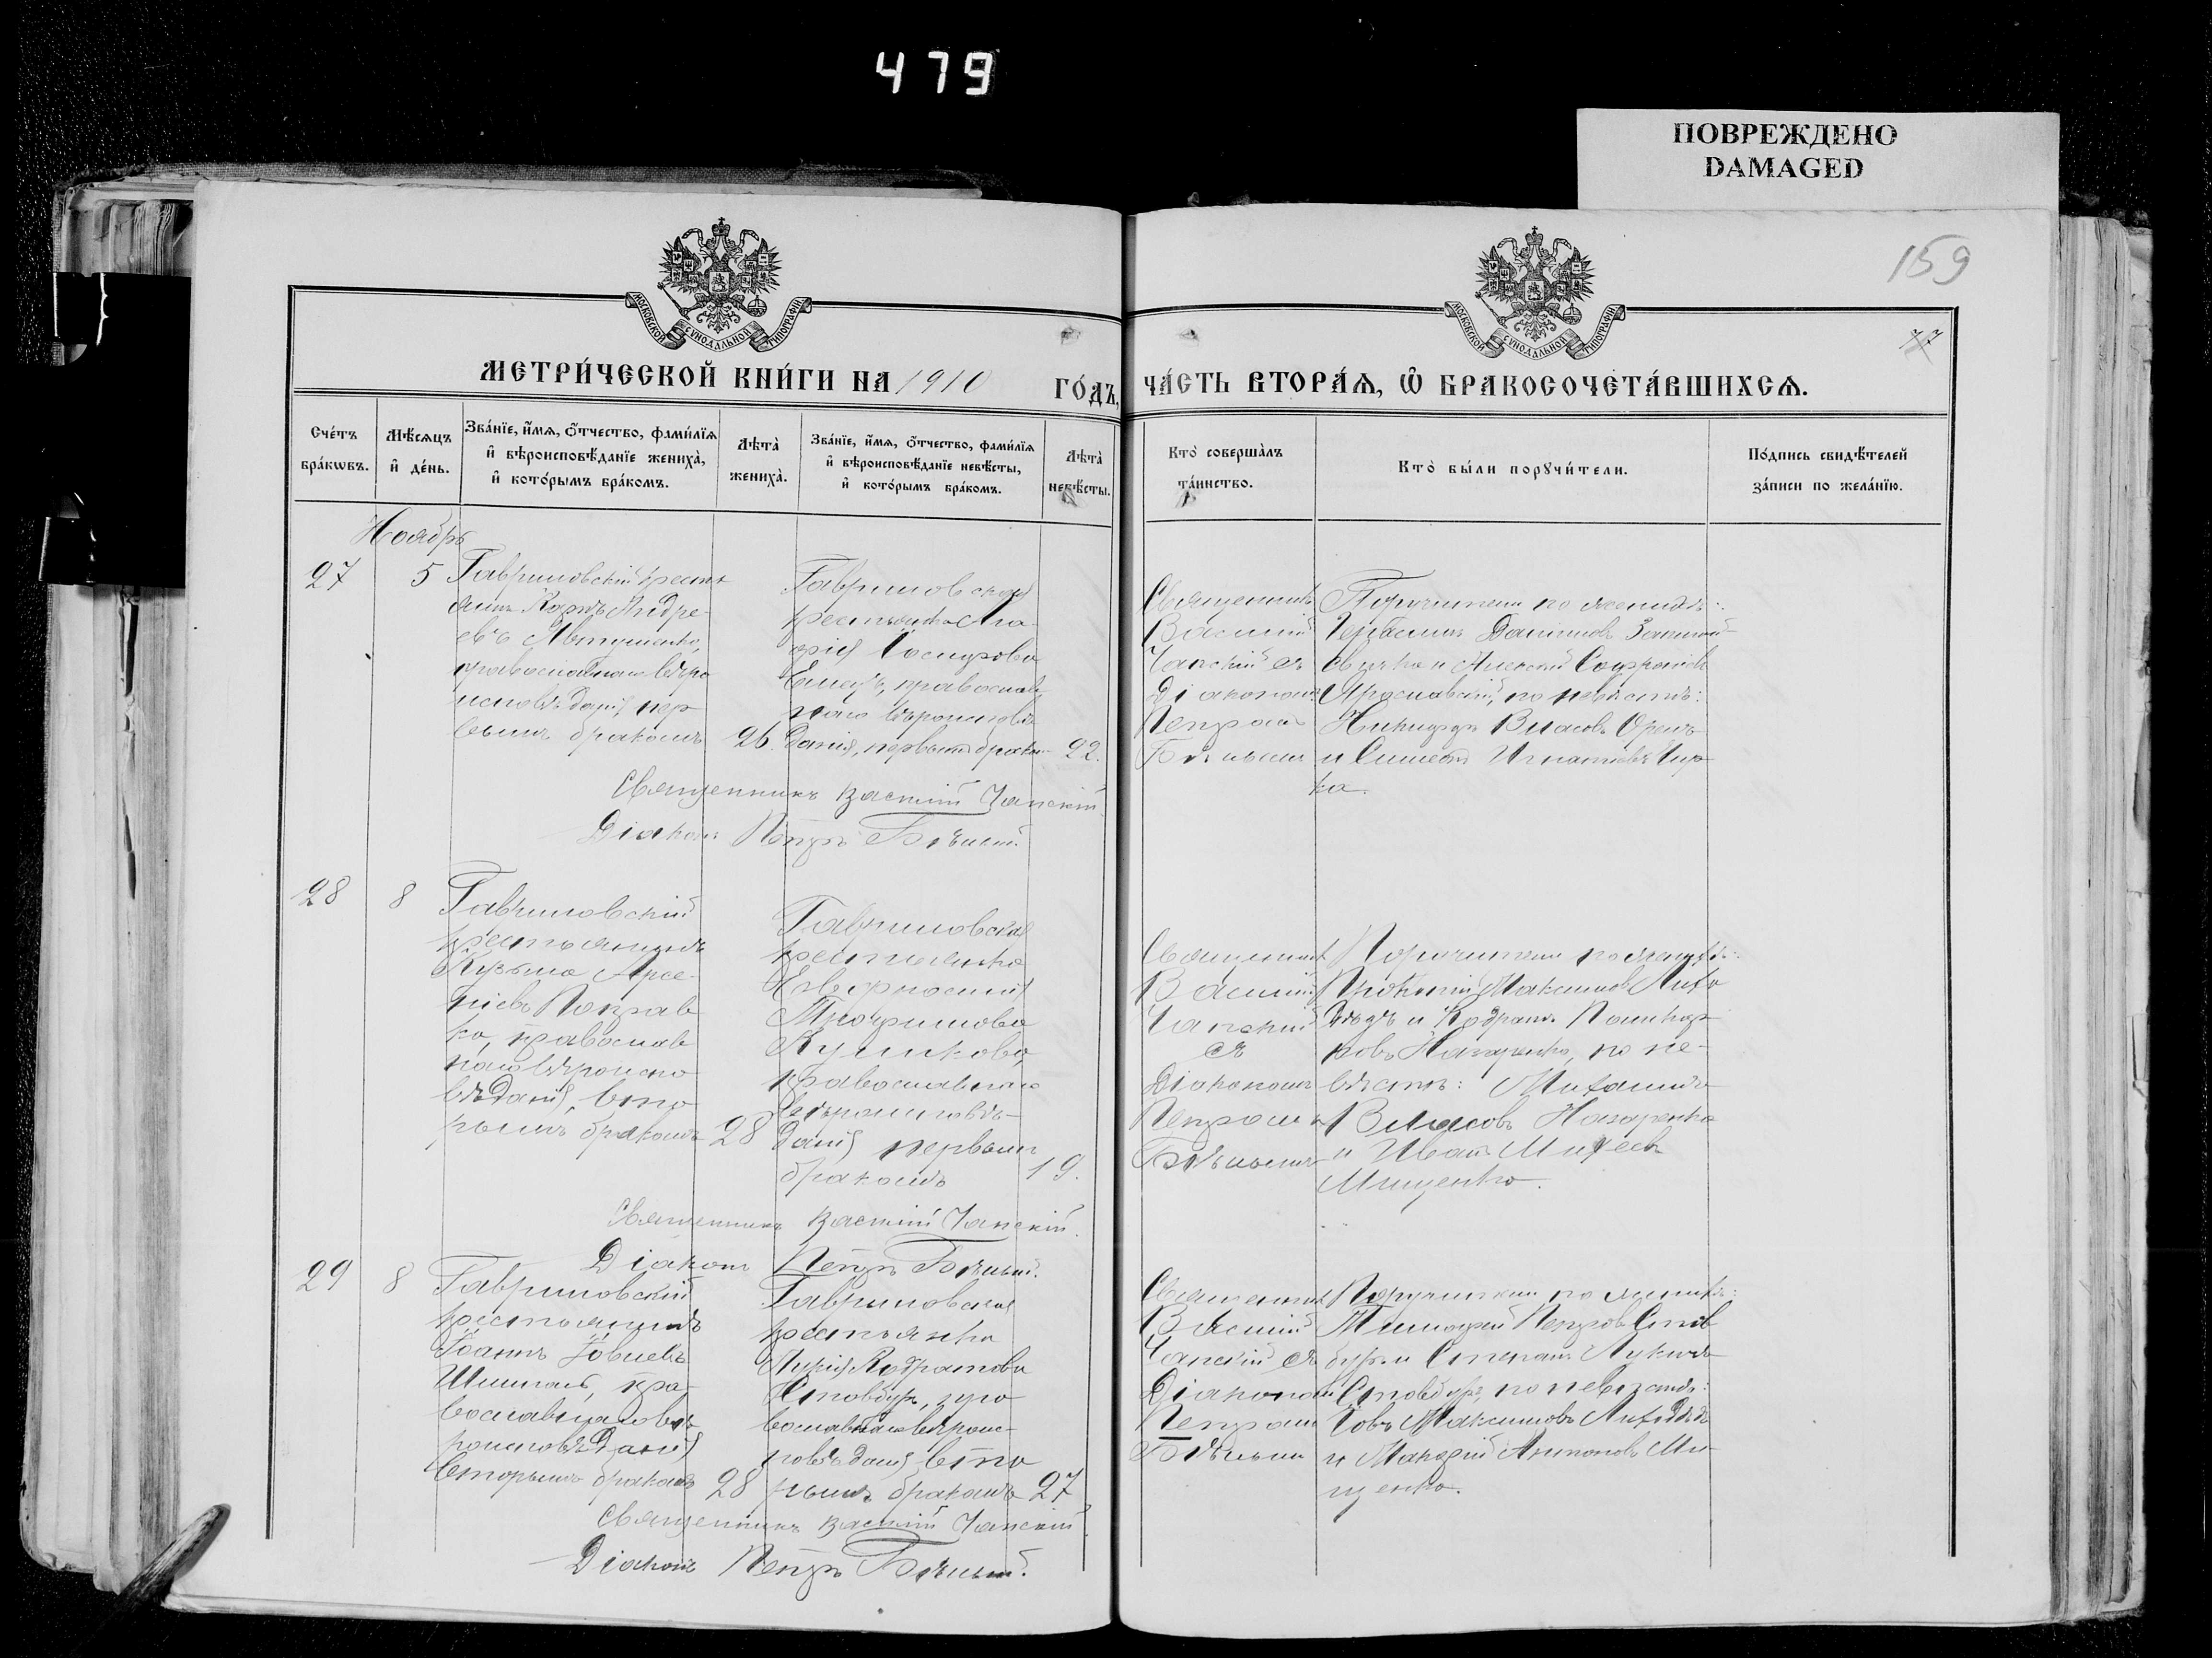 479
ПОВРЕЖДЕНО
DAMAGED
159
77
МОСКОВСКОЙ СѴНОДАЛЬНОЙ ТИПОГРАФІИ
МОСКОВСКОЙ СѴНОДАЛЬНОЙ ТИПОГРАФІИ
МЕТРИ́ЧЕСКОЙ КНИ́ГИ НА 1910 ГО́ДЪ,
ЧА́СТЬ ВТОРА́Ѧ, Ѡ БРАКОСОЧЕТА́ВШИХСѦ.
Сче́тъ бра́кѡвъ.
Мѣ́сѧцъ и҆ де́нь.
Зва́нїе, и҆́мѧ, ѻ҆́тчество, фами́лїѧ
и҆ вѣроисповѣ́данїе жениха̀,
и҆ кото́рымъ бра́комъ.
Лѣта̀ жениха̀.
Зва́нїе, и҆́мѧ, ѻ҆́тчество, фами́лїѧ
и҆ вѣроисповѣ́данїе невѣ́сты,
и҆ кото́рымъ бра́комъ.
Лѣта̀ невѣ́сты.
Кто̀ соверша́лъ та́инство.
Кто̀ бы́ли порꙋчи́тели.
По́дпись свидѣ́телей
за́писи по жела́нїю.
Ноябрь
27
5
Гавриловскій кресть
янинъ Андре-
евъ Автушенко,
православнаго вѣро
исповѣданія, пер
вымъ бракомъ
26.
Гавриловская
крестьянка Ма-
рія Іосифова
православ
наго вѣроисповѣ
данія, первымъ бракомъ
22.
Священникъ
Василій
Чапскій съ
Діакономъ
Петромъ
Бѣлымъ
Поручители по женихѣ:
Данiиловъ
и Алексѣй Софроніевъ
Ярославскій, по невѣстѣ:
Никифоръ Власовъ
и Симеонъ Игнатіевъ
ка.
Священникъ Василій Чапскій
Діаконъ Петръ Бѣлый.
28
8
Гавриловскій
крестьянинъ
Кузьма Арсе-
ніевъ Поправ
ко, православ
наго вѣроиспо
вѣданія, вто
рымъ бракомъ
28
Гавриловская
крестьянка
Евфросинія
Трофимова
Куликова,
православнаго
вѣроисповѣ-
данія первымъ
бракомъ
19.
Священникъ
Василій
Чапскій
съ
Діакономъ
Петромъ
Бѣлымъ
Поручители по женихѣ:
Прокопій Максимовъ Лихо
дѣдъ и Кодратъ Поликар
повъ по не-
вѣстѣ: Михаилъ
Власовъ Назаренко
и Иванъ Михеевъ
Мищенко.
Священникъ Василій Чапскій.
Діаконъ Петръ Бѣлый.
29
8
Гавриловскій
крестьянинъ
Іоаннъ Іовлевъ
пра
вославнаго вѣ
роисповѣданія
вторымъ бракомъ
28
Гавриловская
крестьянка
Кодратова
Стовбуръ, пра
вославнаго вѣроис-
повѣданія вто
рымъ бракомъ
27
Священникъ
Василій
Чапскій съ
Діакономъ
Петромъ
Бѣлымъ
Поручители по женихѣ:
Тимофей Петровъ Стов
буръ и Степанъ Лукичъ
Стовбуръ, по невѣстѣ:
Іовъ Максимовъ Лиходѣдъ
и Макарій Антоновъ Ми-
щенко.
Священникъ Василій Чапскій
Діаконъ Петръ Бѣлый.